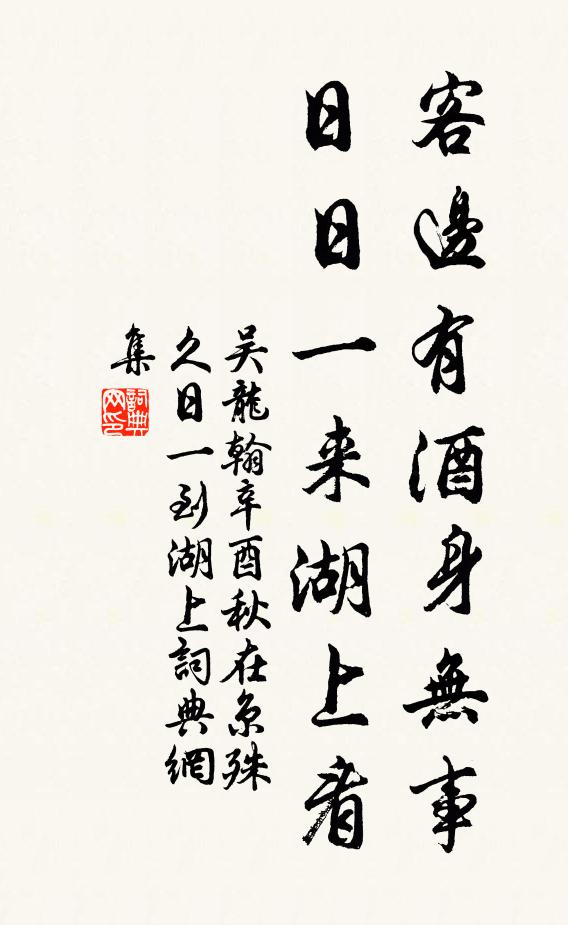 客邊有酒身無事
日日一来湖上看
吴龍翰辛酉秋在京殊
久日一到湖上詞典網
集
詞典网印